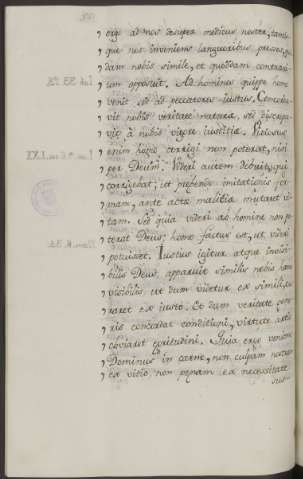 ergo ad nos cæsper medicus noster, tanti-
que nos inveniens languoribus pressos, quo-
dam nobis simile, et quoddam contrari-
um apposuit. Ad homines quippe homo
venit sed ad peccatores iustus. Concor-
vit nobis veritate naturæ, sed discrepa-
vit à nobis vigore iustitiæ. Vitiosus
enim homo corrigi non poterat, nisi
per Deum. Videri autem debuit, qui
corrigebat, ut præbendo imitationis for-
mam, ante actæ malitiæ mutaret vi-
tam. Sed quia videri ab homine non po-
terat Deus; homo factus est, ut videri
potuisset. Iustus igitur atque invisi-
bilis Deus, apparuit similis nobis homo
visibilis, ut dum videtur ex simili, cu-
raret ex iusto. Et dum veritate gene-
ris concordat conditioni, virtute artis
obviaret ægritudini. Quia ergo veniens
Dominus in carne, non culpam nostram
ex vitio, non pœnam ex necessitate
sus-